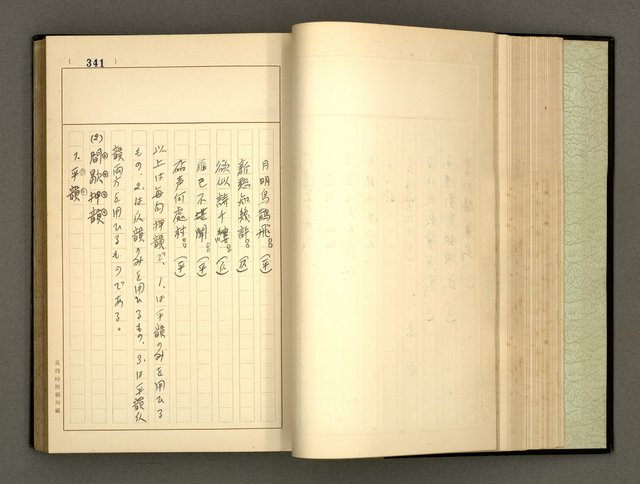 ( 341 )
月明烏鵲飛。(平)
新愁知幾許。(仄)
欲似絲千縷。(仄)
雁已不堪聞。(平)
砧声何處村。(平)
以上は每句押韻で、1.は平韻のみを用ひる
もの、2.は仄韻のみを用ひるもの、3.は平韻仄
韻両方を用ひるものである。
(2) 間歇押韻
1. 平韻
黃得時原稿用紙